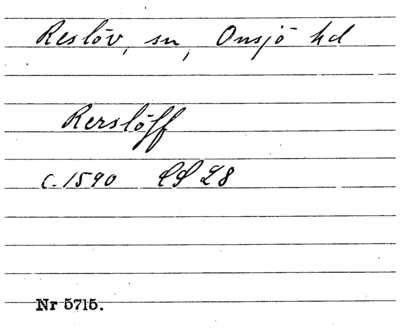 Reslöv, sn, Onsjö hd
Rerslöff
c. 1590 LSL8
Nr 5715.